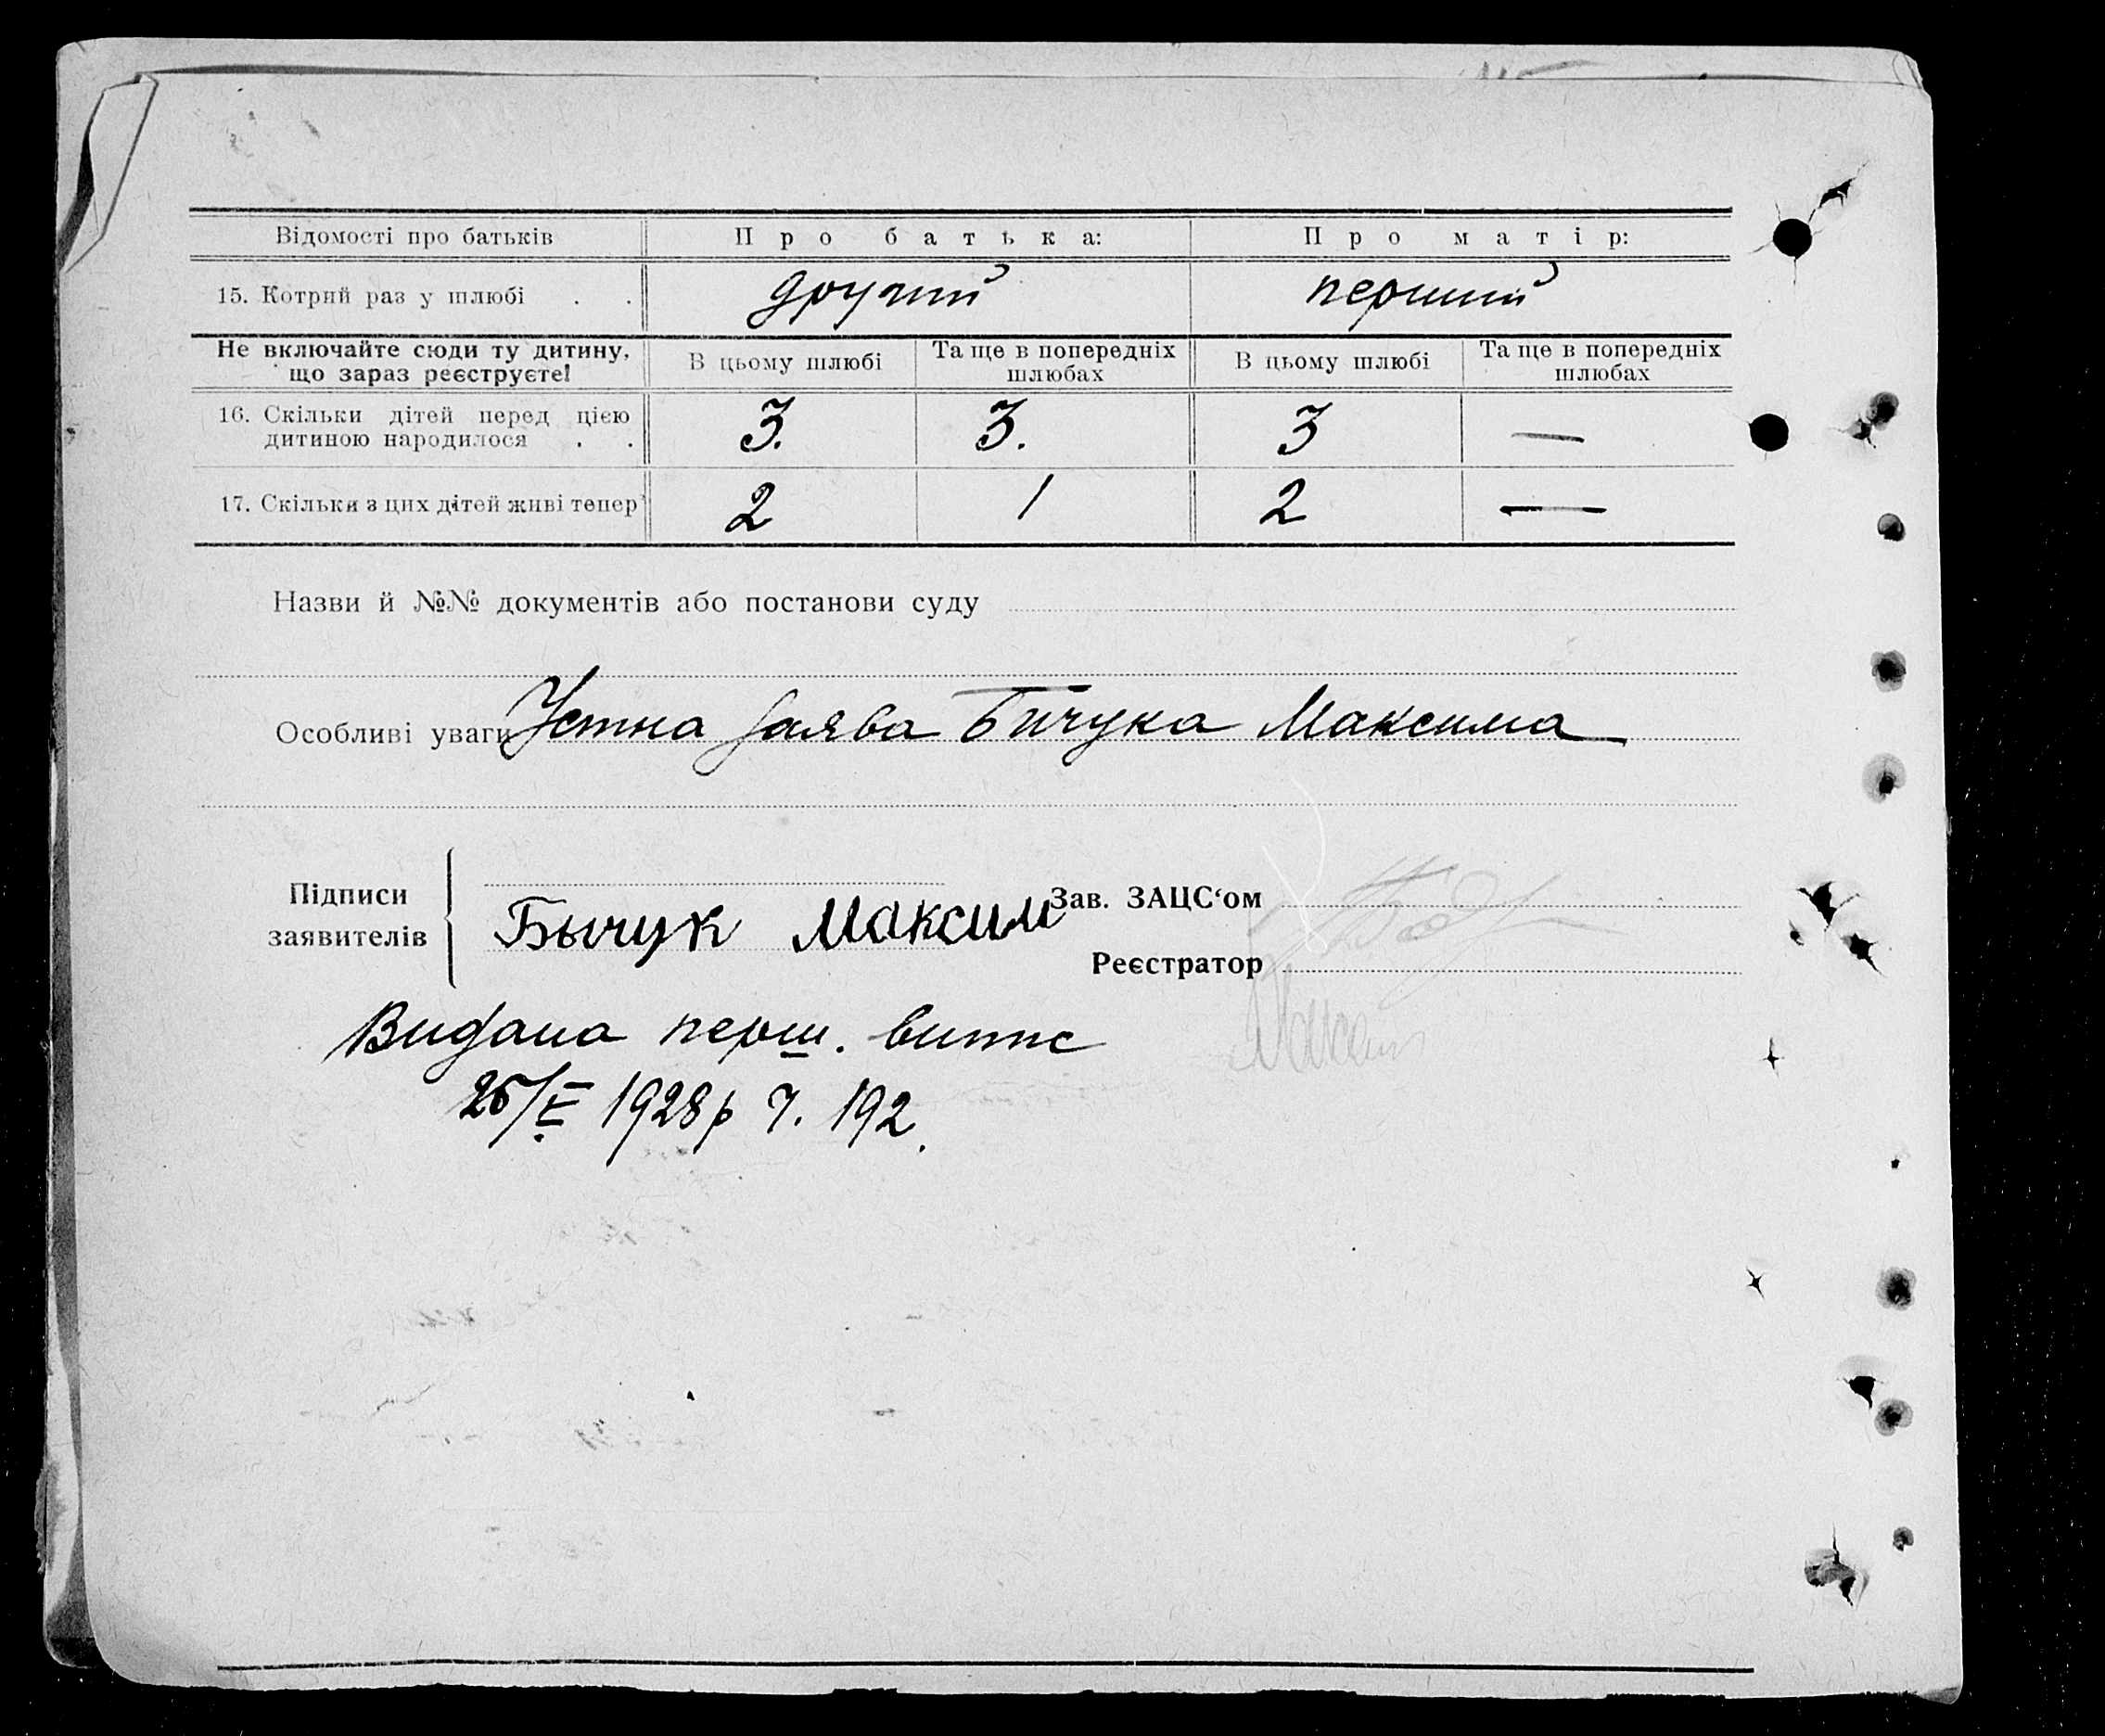 Відомості про батьків Про батька: Про матір:
15. Котрий раз у шлюбі . . другий перший
Не включайте сюди ту дитину, що зараз реєструєте! В цьому шлюбі Та ще в попередніх шлюбах В цьому шлюбі Та ще в попередніх шлюбах
16. Скільки дітей перед цією
дитиною народилося . . 3. 3. 3 —
17. Скільки з цих дітей живі тепер 2 1 2 —
Назви й №№ документів або постанови суду
Особливі уваги Устна заява Бичука Максима
Підписи заявителів Бычук Максим
Зав. ЗАЦС‘ом
Реєстратор
Видана перш. випис
25/V 1928 р ч. 192.